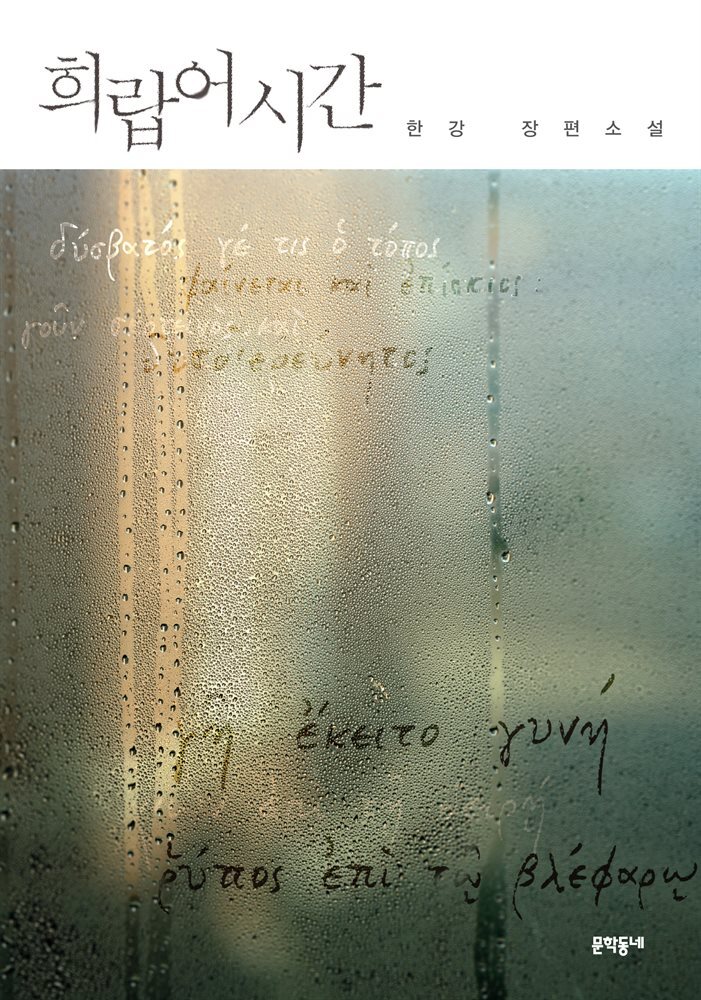 희랍어 시간
한강 장편소설
δύσβατός γέ τις ὁ τόπος
φαίνεται καὶ ἐπίσκιος
γοῦν σκοτεινὸς καὶ
γῆ ἔκειτο γυνή
ῥύπος ἐπὶ τῷ βλέφαρῳ
문학동네